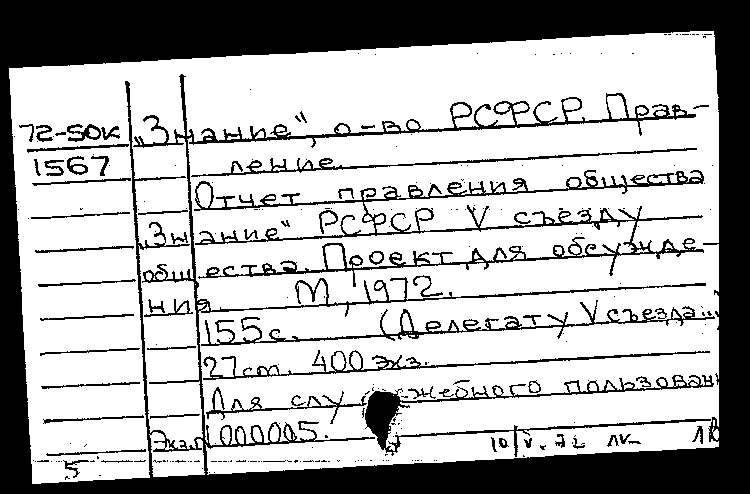 72-50к „Знание", о-во РСФСР. Прав-
1567 ление.
Отчет правления общества
„Знание" РСФСР V съезду
общества. Проект для обсужде-
ния. М, 1972.
155с. (Делегату V съезда...)
27cm. 400 экз.
Для служебного пользован
Экз.n 000005.
5 10/V.72